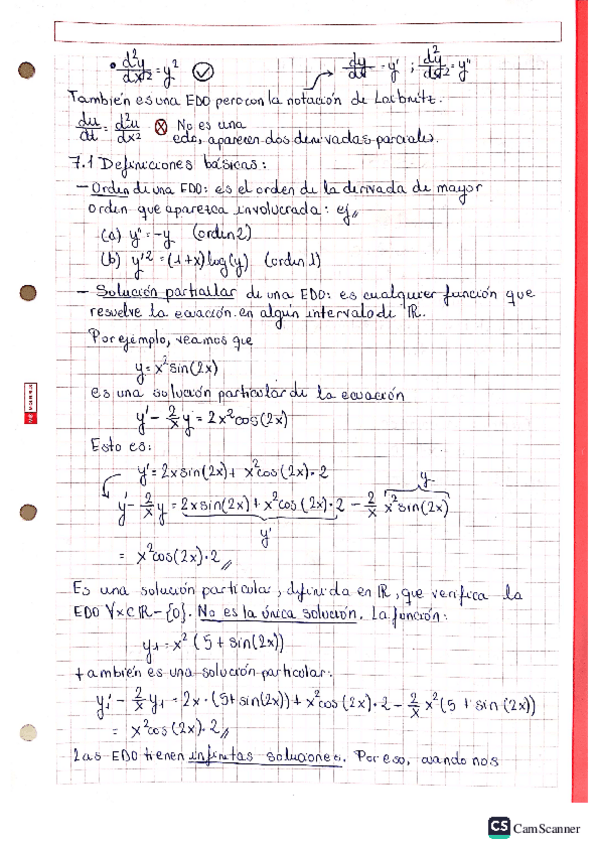 • d²y/dx² = y² ✓ dy/dt = y' ; d²y/dt² = y''
También es una EDO pero con la notación de Leibnitz.
du/dt = d²u/dx² ⊗ No es una
edo, aparecen dos derivadas parciales.
7.1 Definiciones básicas:
- Orden de una EDO: es el orden de la derivada de mayor
orden que aparezca involucrada: ej,,
(a) y'' = -y (orden 2)
(b) y'² = (1+x)log(y) (orden 1)
- Solución particular de una EDO: es cualquier función que
resuelve la ecuación en algún intervalo de ℝ.
Por ejemplo, veamos que
y = x² sin(2x)
es una solución particular de la ecuación
y' - 2/x y = 2x² cos(2x)
Esto es:
y' = 2x sin(2x) + x² cos(2x)·2
y
y' - 2/x y = 2x sin(2x) + x² cos(2x)·2 - 2/x x² sin(2x)
y'
= x² cos(2x)·2,,
Es una solución particular, definida en ℝ, que verifica la
EDO ∀x∈ℝ-{0}. No es la única solución. La función:
y₁ = x² (5 + sin(2x))
también es una solución particular:
y₁' - 2/x y₁ = 2x·(5+sin(2x)) + x² cos(2x)·2 - 2/x x² (5 + sin(2x))
= x² cos(2x)·2,,
Las EDO tienen infinitas soluciones. Por eso, cuando nos
CS CamScanner